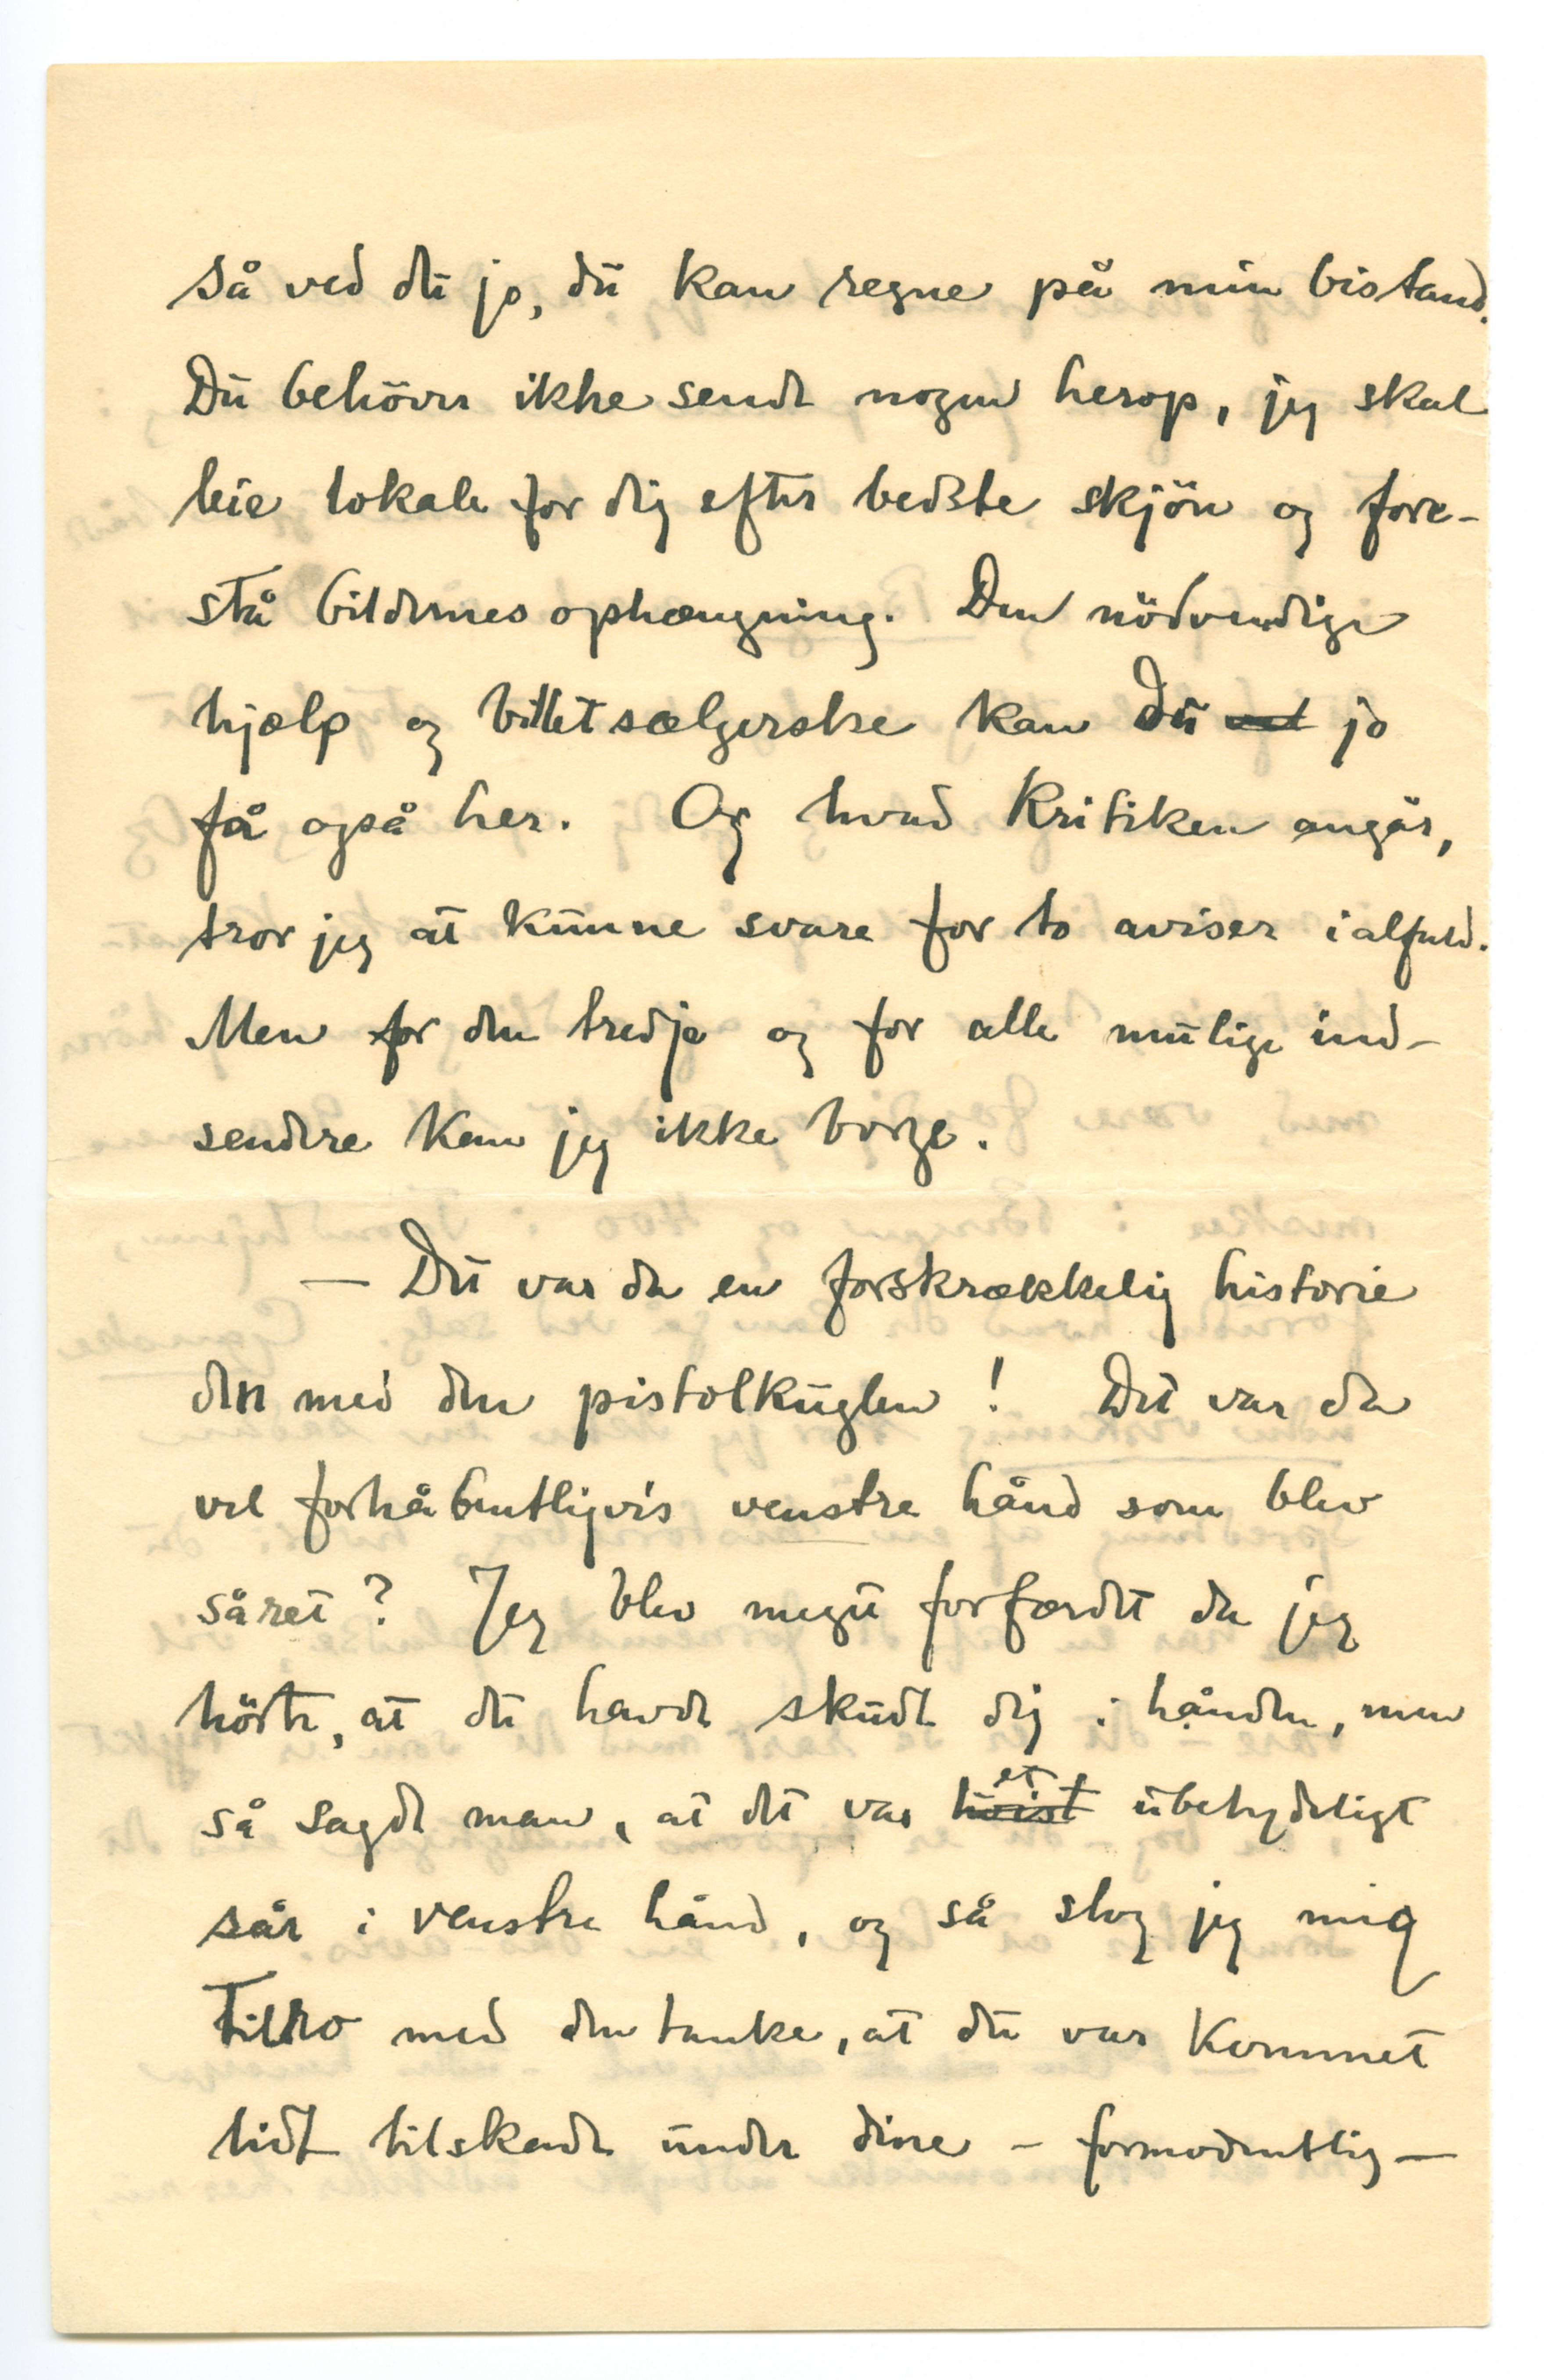 så ved du jo, du kan regne på min bistand.
Du behöver ikke sende nogen herop, jeg skal
leie lokale for dig efter bedste skjön og fore-
stå bildernes ophængning. Den nödvendige
hjælp og billetsælgerske kan Du vel jo
få også her. Og hvad Kritiken angår,
tror jeg at kunne svare for to aviser ialfald.
Men for den tredje og for alle mulige ind-
sendere kan jeg ikke borge.
— Det var da en forskrækkelig historie
den med den pistolkuglen! Det var da
vel forhåbentligvis venstre hånd som blev
såret? Jeg blev meget forfærdet da jeg
hörte, at du havde skudt dig i hånden, men
så sagde man, at det var höist et ubetydeligt
sår i venstre hånd, og så slog jeg mig
tilro med den tanke, at du var kommet
lidt tilskade under dine – formodentlig —